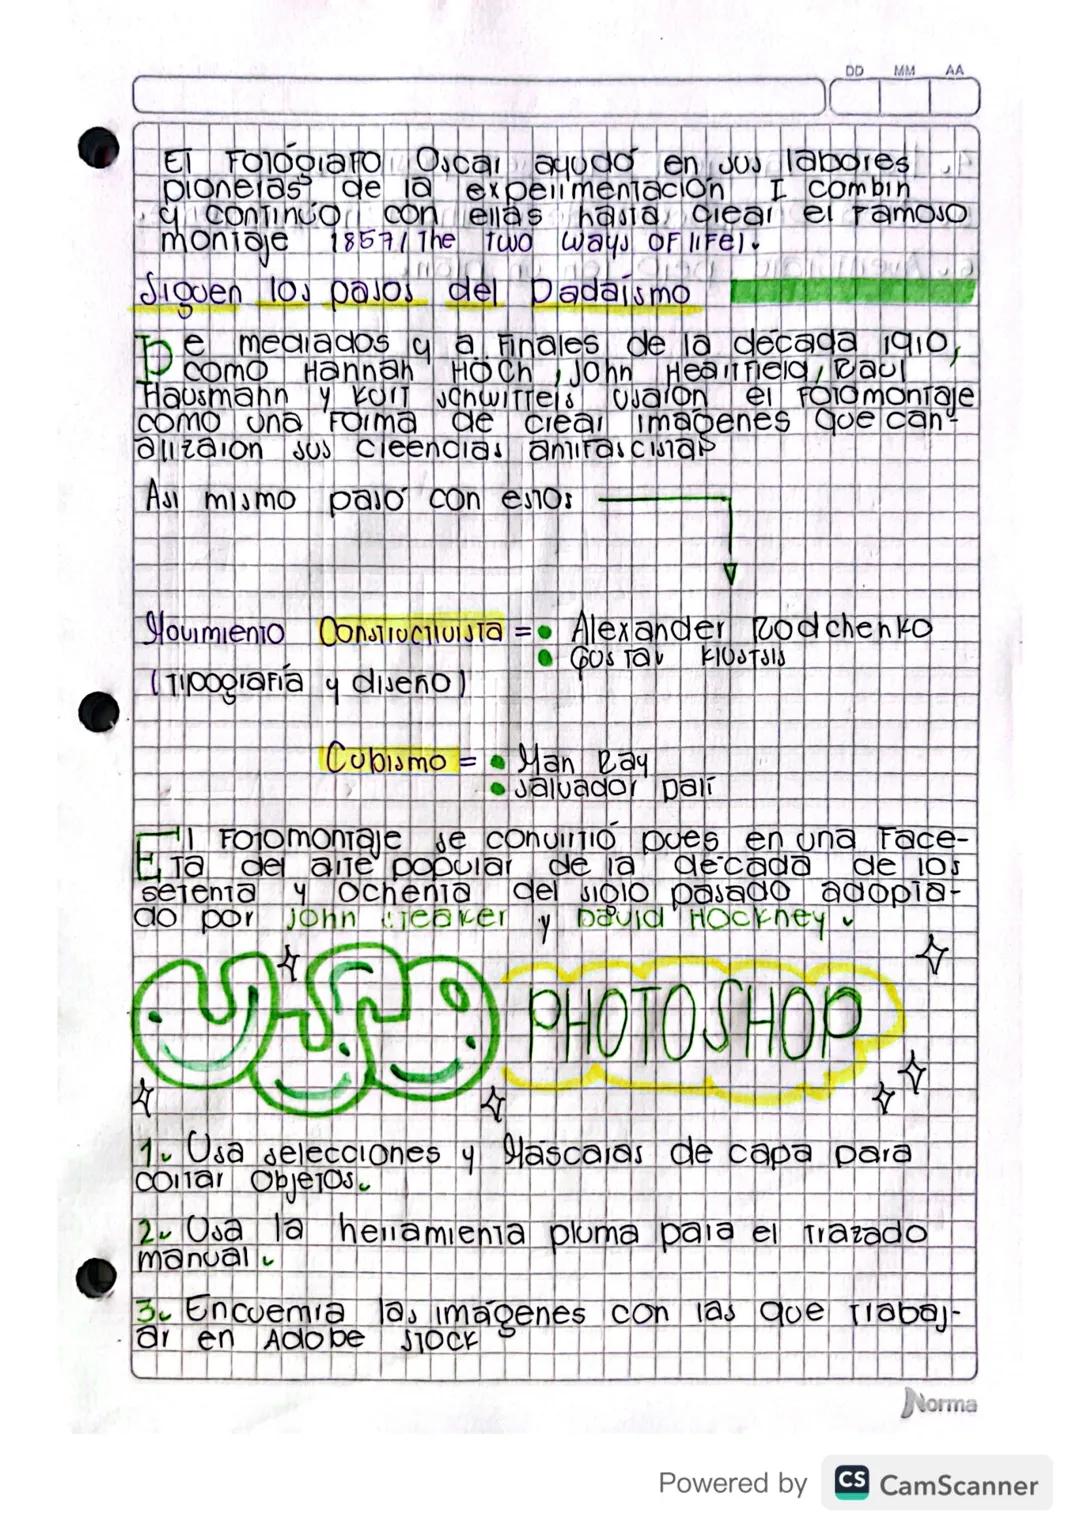 DD MM AA
El Fotógrafo Oscar ayudó en sus labores
pioneras de la experimentación I combin
y continúo con ellas hasta crear el famoso
montaje 1857/ The Two Ways OF lifel.
Siguen los pasos del Dadaísmo
De mediados y a finales de la década 1910,
como Hannah HÖCh, John Heartfield, Raul
Hausmann y Kurt Schwitters usaron el Fotomontaje
como una Forma de crear imágenes que can-
alizaron sus creencias antifascistas
Asi mismo pasó con estos
Movimiento Constructivista = • Alexander Rodchenko
• Gustav Klustsis
(Tipografía y diseño)
Cubismo = • Man Ray
• Salvador Dalí
El Fotomontaje se convirtió pues en una Face-
ta del arte popular de la década de los
setenta y ochenta del siglo pasado adopta-
do por John y David Hockney.
USO PHOTOSHOP
1. Usa selecciones y Máscaras de capa para
cortar Objetos.
2. Usa la herramienta pluma para el trazado
manual.
3. Encuentra las imágenes con las que trabaj-
ar en Adobe Stock
Norma
Powered by CS CamScanner